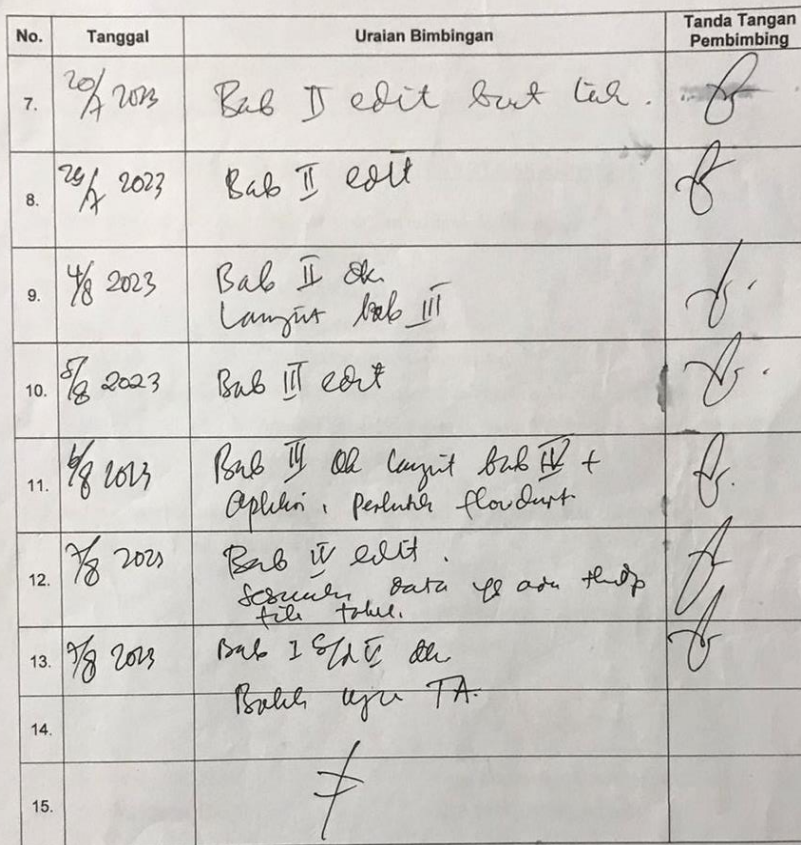 No. Tanggal Uraian Bimbingan Tanda Tangan
Pembimbing
7. 20/7 2023 Bab II edit
8. 26/7 2023 Bab II edit
9. 4/8 2023 Bab II Ok
Lanjut bab III
10. 5/8 2023 Bab III edit
11. 6/8 2023 Bab III Ok lanjut bab IV +
flowchart
12. 7/8 2023 Bab IV edit.
data yg ada
file tabel.
13. 7/8 2023 Bab I S/d V Ok
14. TA.
15.